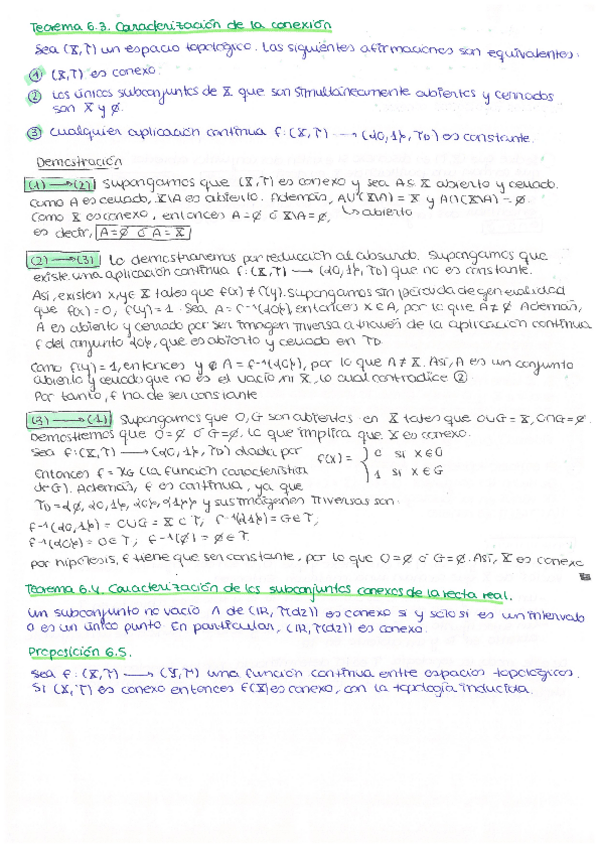 Teorema 6.3. Caracterización de la conexión
Sea (X,T) un espacio topológico. Las siguientes afirmaciones son equivalentes:
① (X,T) es conexo.
② Los únicos subconjuntos de X que son simultáneamente abiertos y cerrados
son X y ∅.
③ Cualquier aplicación continua f: (X,T) → ({0,1}, T_D) es constante.
Demostración
(1)→(2) Supongamos que (X,T) es conexo y sea A ⊆ X abierto y cerrado.
Como A es cerrado, X\A es abierto. Además, A∪(X\A) = X y A∩(X\A) = ∅.
Como X es conexo, entonces A=∅ ó X\A=∅, ↳ abierto
es decir, A=∅ ó A=X
(2)→(3) Lo demostraremos por reducción al absurdo. Supongamos que
existe una aplicación continua f: (X,T) → ({0,1}, T_D) que no es constante.
Así, existen x,y∈X tales que f(x) ≠ f(y). Supongamos sin pérdida de generalidad
que f(x)=0, f(y)=1. Sea A = f⁻¹({0}), entonces x∈A, por lo que A≠∅. Además,
A es abierto y cerrado por ser imagen inversa a través de la aplicación continua
f del conjunto {0}, que es abierto y cerrado en T_D.
Como f(y)=1, entonces y∉A=f⁻¹({0}), por lo que A≠X. Así, A es un conjunto
abierto y cerrado que no es el vacío ni X, lo cual contradice ②.
Por tanto, f ha de ser constante
(3)→(1) Supongamos que O,G son abiertos en X tales que O∪G=X, O∩G=∅.
Demostremos que O=∅ ó G=∅, lo que implica que X es conexo.
Sea f: (X,T) → ({0,1}, T_D) dada por f(x) = { 0 si x∈O
Entonces f = χ_G (la función característica 1 si x∈G
de G). Además, f es continua, ya que
T_D = {∅, {0,1}, {0}, {1}} y sus imágenes inversas son:
f⁻¹({0,1}) = O∪G = X∈T, f⁻¹({1}) = G∈T,
f⁻¹({0}) = O∈T, f⁻¹(∅) = ∅∈T.
Por hipótesis, f tiene que ser constante, por lo que O=∅ ó G=∅. Así, X es conexo
Teorema 6.4. Caracterización de los subconjuntos conexos de la recta real.
Un subconjunto no vacío A de (ℝ, T(d2)) es conexo si y sólo si es un intervalo
o es un único punto. En particular, (ℝ, T(d2)) es conexo.
Proposición 6.5.
Sea f: (X,T) → (Y,T') una función continua entre espacios topológicos.
Si (X,T) es conexo entonces f(X) es conexo, con la topología inducida.